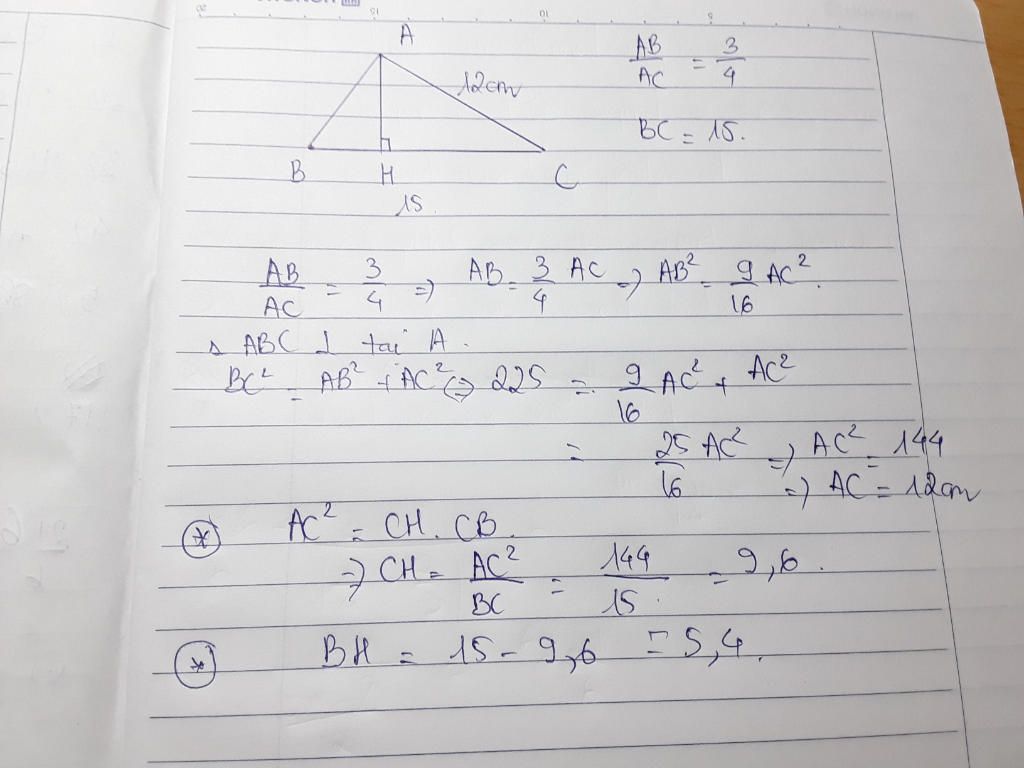 A
12cm
B H C
15
AB/AC = 3/4
BC = 15.
AB/AC = 3/4 => AB = 3/4 AC => AB² = 9/16 AC².
Δ ABC ⊥ tại A.
BC² = AB² + AC² <=> 225 = 9/16 AC² + AC²
= 25/16 AC² => AC² = 144
=> AC = 12cm
* AC² = CH. CB.
=> CH = AC²/BC = 144/15. = 9,6.
* BH = 15 - 9,6 = 5,4.